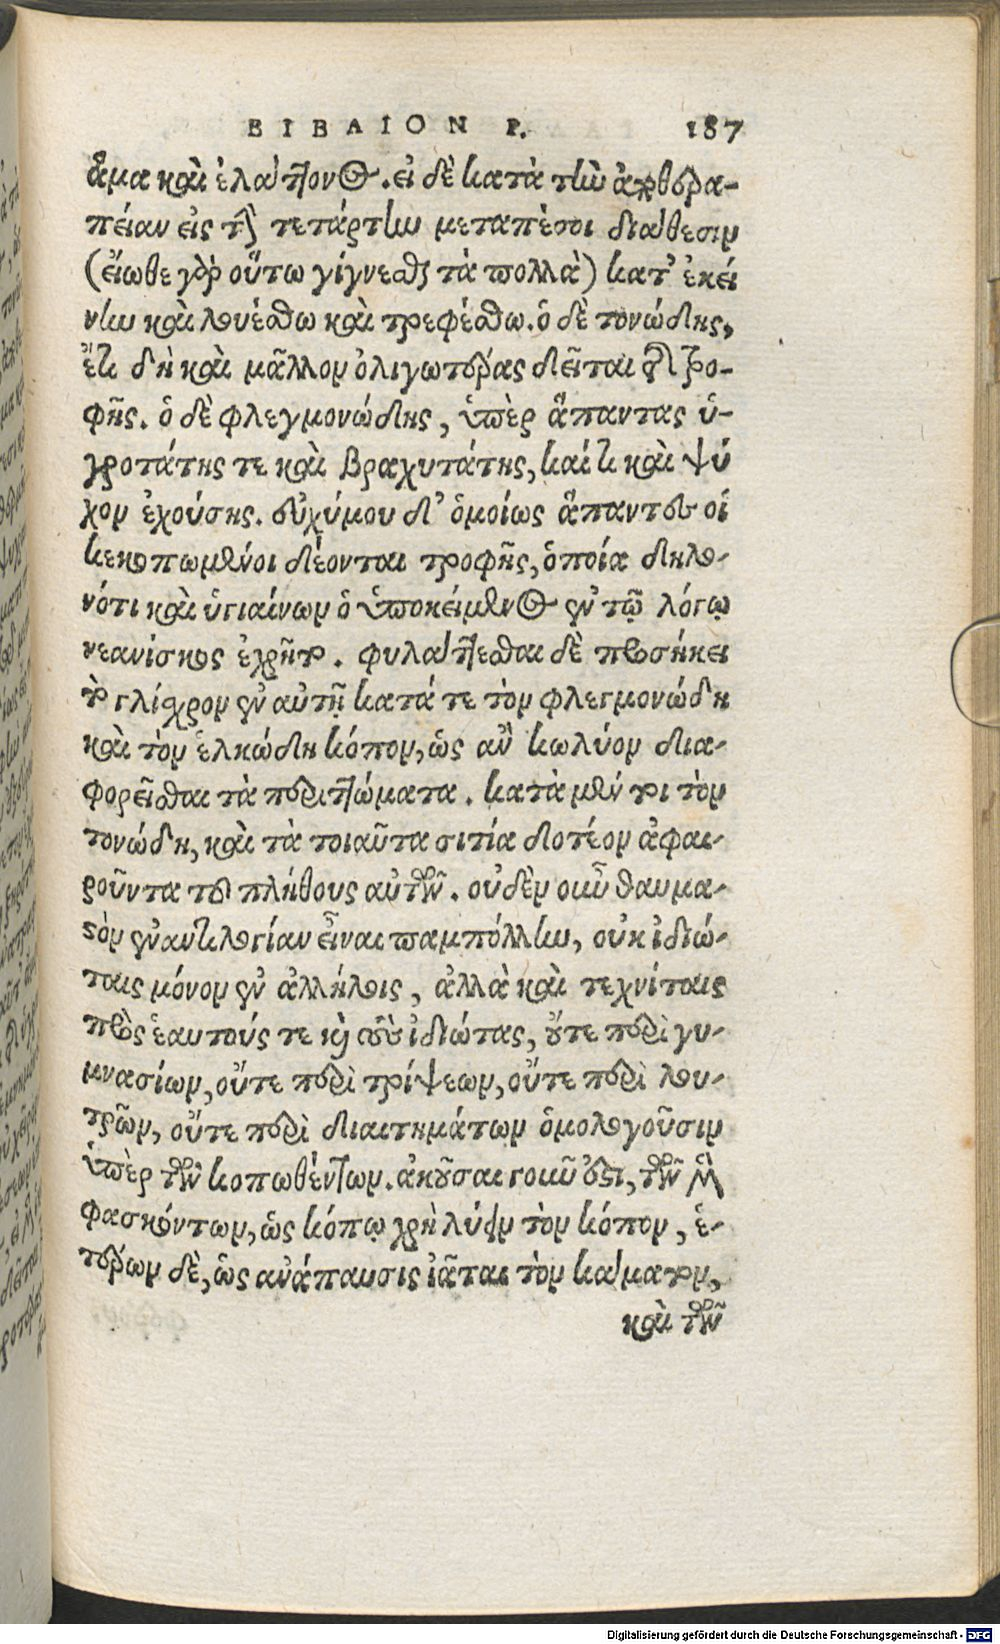 ΒΙΒΛΙΟΝ Γ. 187
ἅμα καὶ ἐλάττονος. εἰ δὲ κατὰ τὴν ἀποθερα-
πείαν εἰς τὴν τετάρτην μεταπέσοι διάθεσιν
(εἴωθε γὰρ οὕτω γίγνεσθαι τὰ πολλὰ) κατ' ἐκεί
νην καὶ λουέσθω καὶ τρεφέσθω. ὁ δὲ τονώδης,
ἔτι δὴ καὶ μᾶλλον ὀλιγωτέρας δεῖται τῆς τρο-
φῆς. ὁ δὲ φλεγμονώδης, ὑπὲρ ἅπαντας ὑ-
γροτάτης τε καὶ βραχυτάτης, καί τι καὶ ψύ
χον ἐχούσης. εὐχύμου δ' ὁμοίως ἅπαντες οἱ
κεκοπωμένοι δέονται τροφῆς, ὁποία δηλο-
νότι καὶ ὑγιαίνων ὁ ὑποκείμενος ἐν τῷ λόγῳ
νεανίσκος ἐχρῆτο. φυλάττεσθαι δὲ προσήκει
τὸ γλίσχρον ἐν αὐτῇ κατά τε τὸν φλεγμονώδη
καὶ τὸν ἑλκώδη κόπον, ὡς ἂν κωλύον δια-
φορεῖσθαι τὰ περιττώματα. κατὰ μέν τοι τὸν
τονώδη, καὶ τὰ τοιαῦτα σιτία δοτέον ἀφαι-
ροῦντα τοῦ πλήθους αὐτῶν. οὐδὲν οὖν θαυμα-
στὸν ἐναντιλογίαν εἶναι παμπόλλην, οὐκ ἰδιώ-
ταις μόνον ἐν ἀλλήλοις, ἀλλὰ καὶ τεχνίταις
πρὸς ἑαυτούς τε καὶ τοὺς ἰδιώτας, οὔτε περὶ γυ-
μνασίων, οὔτε περὶ τρίψεων, οὔτε περὶ λου-
τρῶν, οὔτε περὶ διαιτημάτων ὁμολογοῦσιν
ὑπὲρ τῶν κοπωθέντων. ἀκοῦσαι γοῦν ἔστι, τῶν μὲν
φασκόντων, ὡς κόπῳ χρὴ λύειν τὸν κόπον, ἑ-
τέρων δὲ, ὡς ἀνάπαυσις ἰᾶται τὸν κάματον,
καὶ τῶν
Digitalisierung gefördert durch die Deutsche Forschungsgemeinschaft - DFG